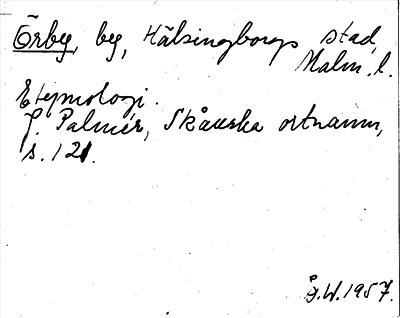 Örby, by, Hälsingborgs stad,
Malm. l.
Etymologi.
J. Palmér, Skånska ortnamn,
s. 121.
Å.W. 1957.